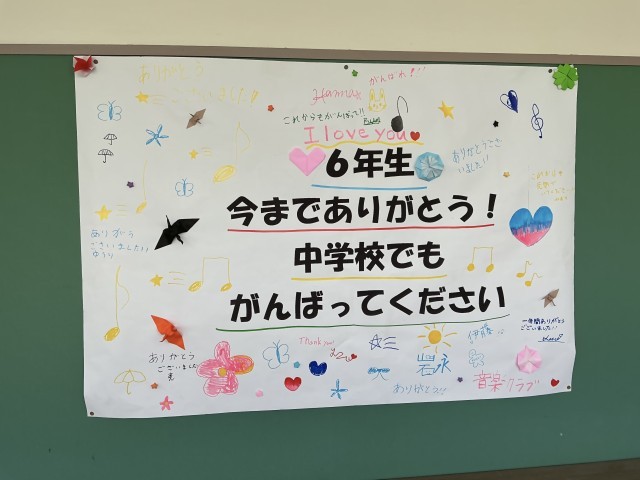 ありがとう
がんばれ!!
Hanna
これからもがんばって!!
I love you
6年生
ありがとうござ
いました!!
今までありがとう!
中学校でも
がんばってください
ありがとう
ございました!!
Thank you!
ありがとう
ございました
一年間ありがとう
ございました!!
伊藤
岩永
ありがとう!!
音楽クラブ